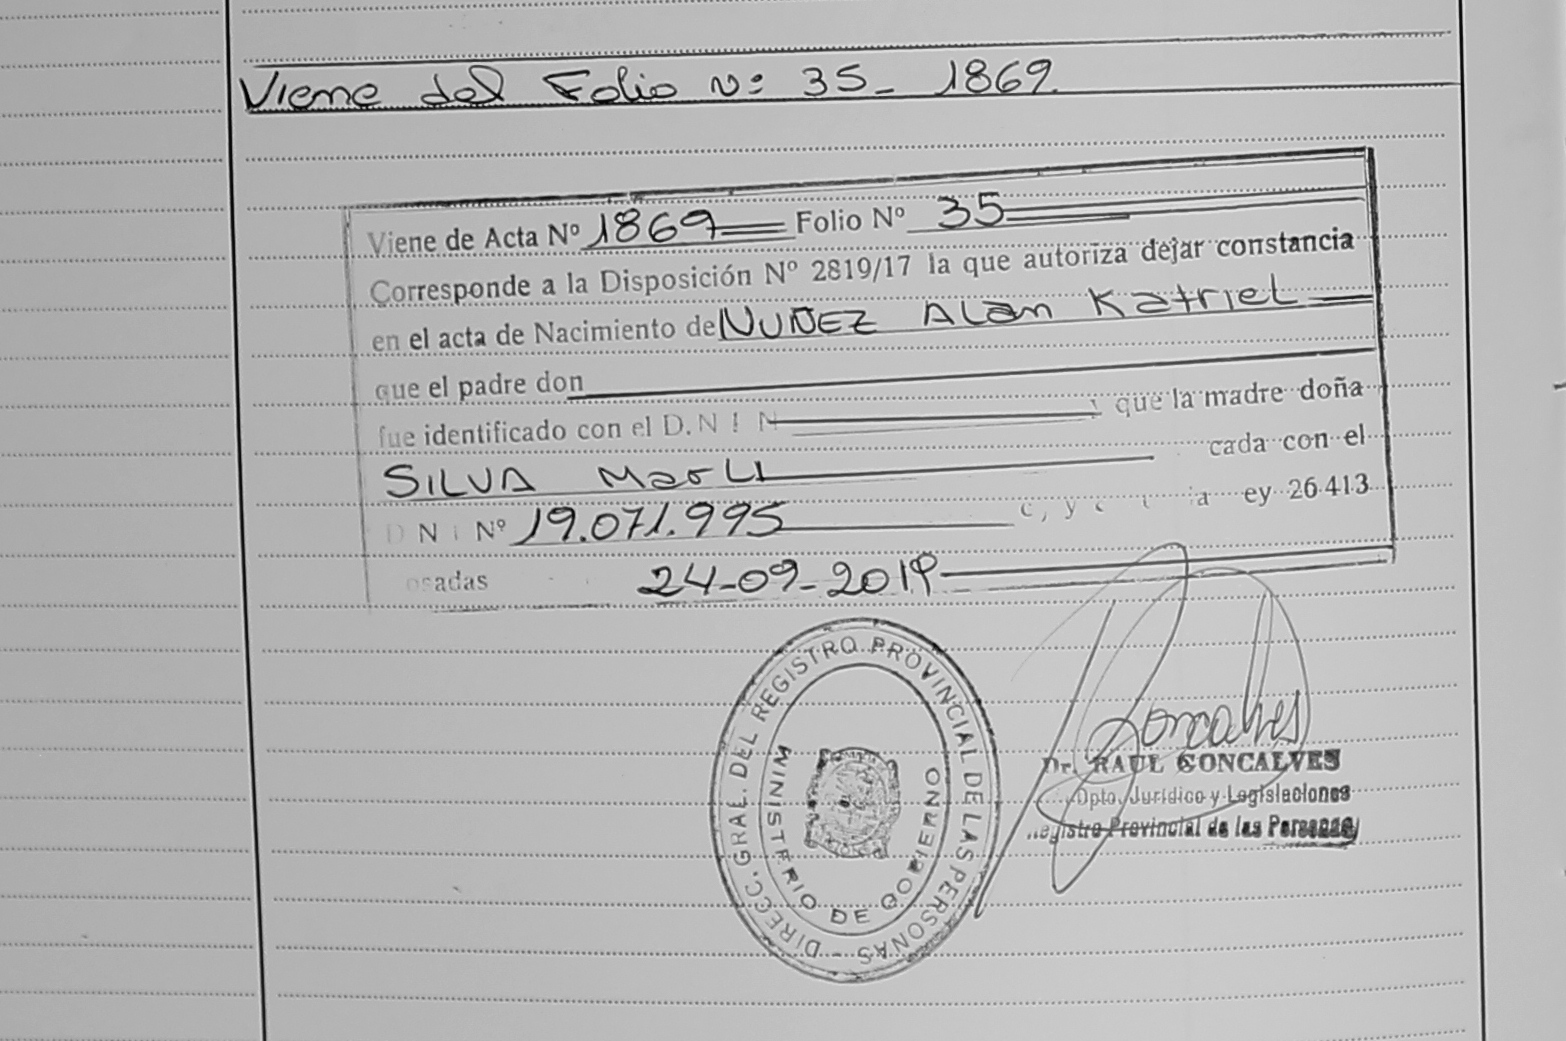 Viene del Folio Nº 35_ 1869.
Viene de Acta Nº 1869 Folio Nº 35
Corresponde a la Disposición Nº 2819/17 la que autoriza dejar constancia
en el acta de Nacimiento de NUÑEZ Alan Katriel
que el padre don
fue identificado con el D.N I N y que la madre doña
SILVA Marli cada con el
D N I Nº 19.071.995 ey 26.413
osadas 24-09-2019
DIRECC. GRAL. DEL REGISTRO PROVINCIAL DE LAS PERSONAS -
MINISTERIO DE GOBIERNO
Goncalves
Dr. RAUL GONCALVES
Dpto. Jurídico y Legislaciones
Registro Provincial de las Personas